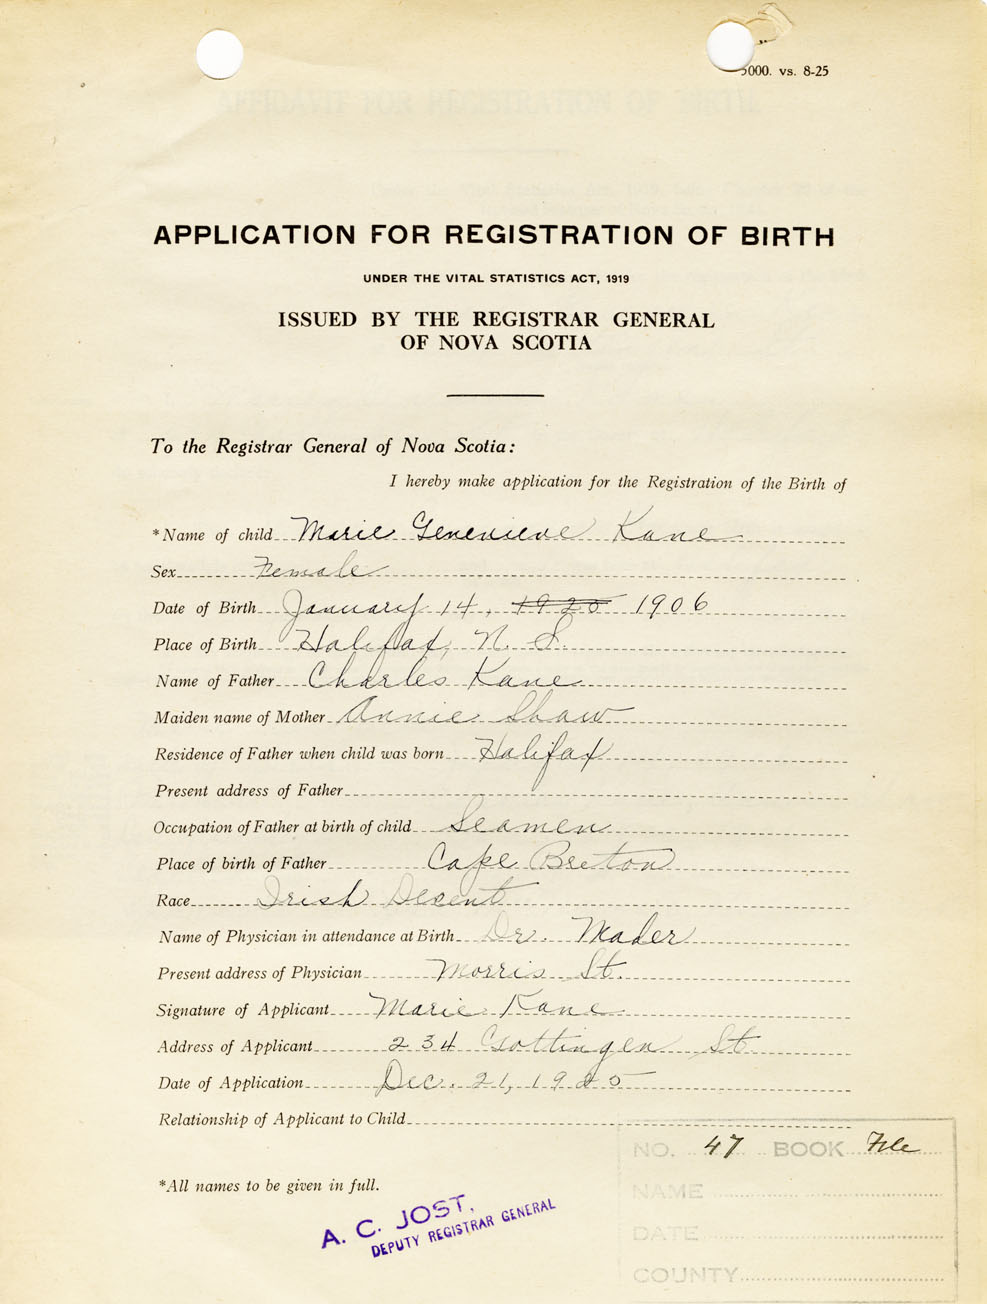 5000. vs. 8-25
APPLICATION FOR REGISTRATION OF BIRTH
UNDER THE VITAL STATISTICS ACT, 1919
ISSUED BY THE REGISTRAR GENERAL
OF NOVA SCOTIA
To the Registrar General of Nova Scotia:
I hereby make application for the Registration of the Birth of
*Name of child Marie Genevieve Kane
Sex Female
Date of Birth January 14, 1925 1906
Place of Birth Halifax, N. S.
Name of Father Charles Kane
Maiden name of Mother Annie Shaw
Residence of Father when child was born Halifax
Present address of Father
Occupation of Father at birth of child Seamen
Place of birth of Father Cape Breton
Race Irish Decent
Name of Physician in attendance at Birth Dr. Mader
Present address of Physician Morris St.
Signature of Applicant Marie Kane
Address of Applicant 234 Gottingen St
Date of Application Dec. 21, 1925
Relationship of Applicant to Child
NO. 47 BOOK File
*All names to be given in full.
NAME
A. C. JOST,
DEPUTY REGISTRAR GENERAL
DATE
COUNTY